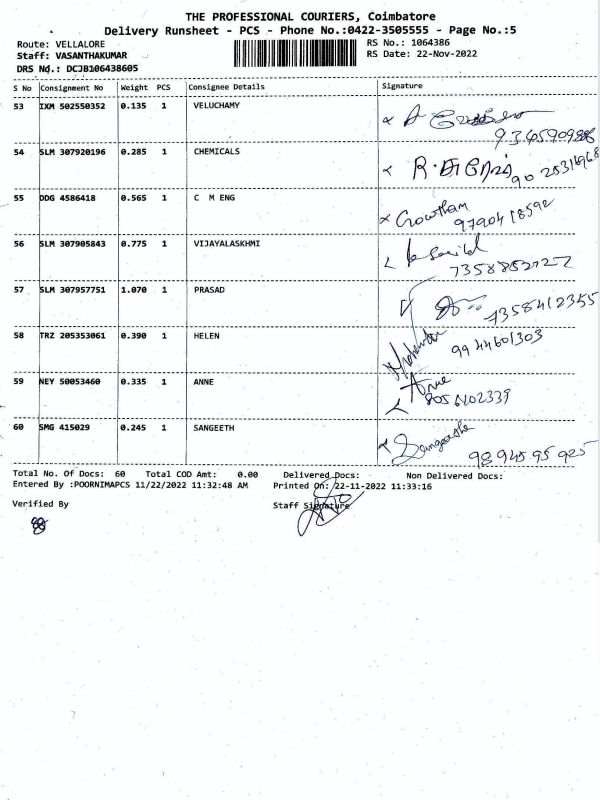 THE PROFESSIONAL COURIERS, Coimbatore
Delivery Runsheet - PCS - Phone No.:0422-3505555 - Page No.:5
Route: VELLALORE
RS No.: 1064386
Staff: VASANTHAKUMAR
RS Date: 22-Nov-2022
DRS No.: DCJB106438605
S No Consignment No Weight PCS Consignee Details Signature
53 IXM 502550352 0.135 1 VELUCHAMY
54 SLM 307920196 0.285 1 CHEMICALS
55 DDG 4586418 0.565 1 C M ENG Gowtham
9790418592
56 SLM 307905843 0.775 1 VIJAYALASKHMI
57 SLM 307957751 1.070 1 PRASAD
7358412355
58 TRZ 205353061 0.390 1 HELEN
9944601303
59 NEY 50053460 0.335 1 ANNE Anne
8056102339
60 SMG 415029 0.245 1 SANGEETH Sangeetha
9894595925
Total No. Of Docs: 60 Total COD Amt: 0.00 Delivered Docs: Non Delivered Docs:
Entered By :POORNIMAPCS 11/22/2022 11:32:48 AM Printed On: 22-11-2022 11:33:16
Verified By Staff Signature